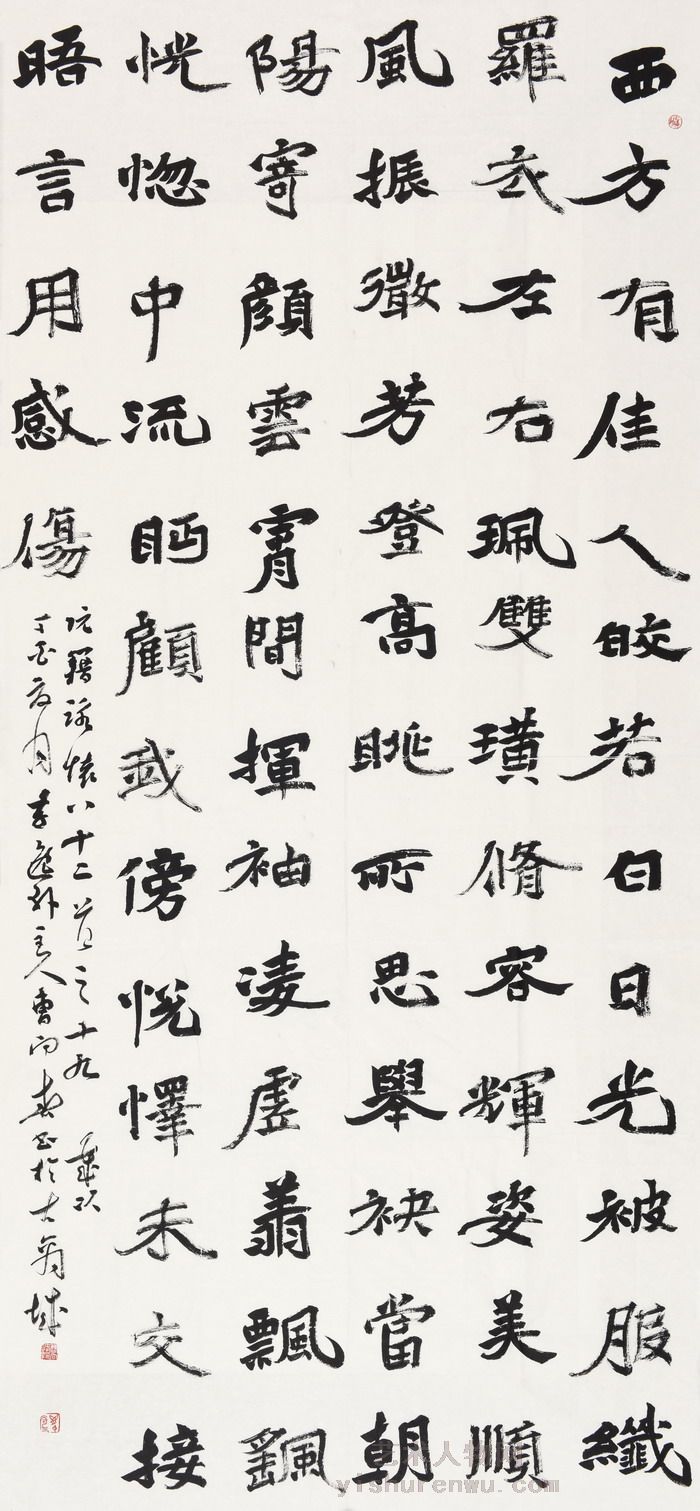 西方有佳人皎若白日光被服纖
羅衣左右珮雙璜脩容輝姿美順
風振微芳登高眺所思舉袂當朝
陽寄顏雲霄間揮袖凌虛翔飄颻
恍惚中流眄顧我傍悅懌未交接
晤言用感傷
阮籍詠懷八十二首之十九
丁酉夏月主人曹向春書於古城
yishurenwu.com